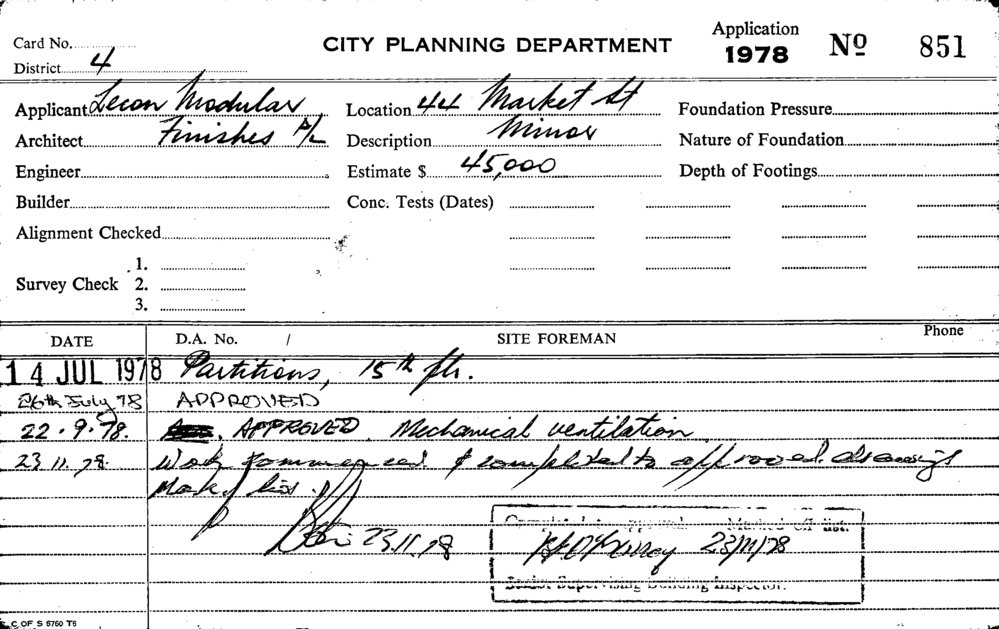 Card No.
District 4
CITY PLANNING DEPARTMENT
Application
1978 Nº 851
Applicant Lecon Modular
Location 44 Market St
Foundation Pressure
Architect Finishes P/L
Description Minor
Nature of Foundation
Engineer
Estimate $ 45,000
Depth of Footings
Builder
Conc. Tests (Dates)
Alignment Checked
Survey Check 1.
2.
3.
DATE D.A. No. / SITE FOREMAN Phone
14 JUL 1978 Partitions, 15th flr.
26th July 78 APPROVED
22.9.78. APPROVED. Mechanical ventilation
23.11.78. Work commenced & completed to approved drawings
Mark off list.
23.11.78
Completed approval. Marked off list.
23/11/78
Senior Supervising Building Inspector.
C OF S 6760 T6